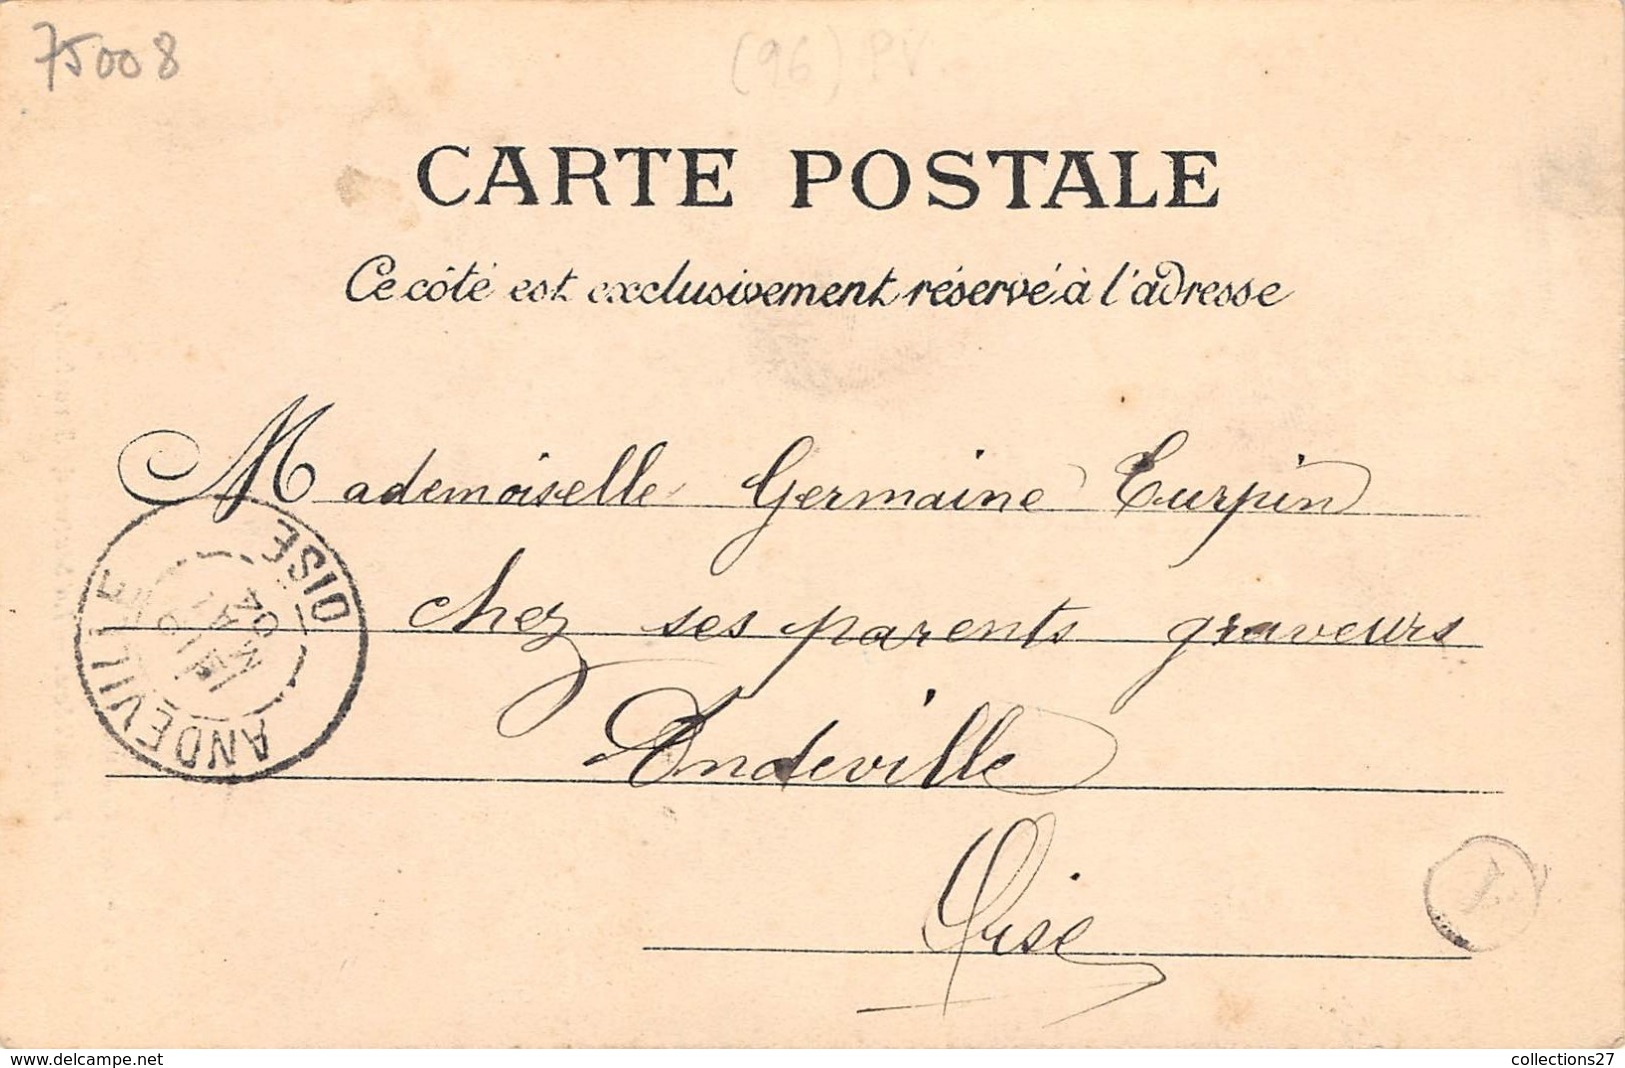 75008
(96) PV.
CARTE POSTALE
Ce côté est exclusivement réservé à l'adresse
Mademoiselle Germaine Turpin
chez ses parents graveurs
Andeville
Oise
ANDEVILLE
OISE
04
1
www.delcampe.net
collections27